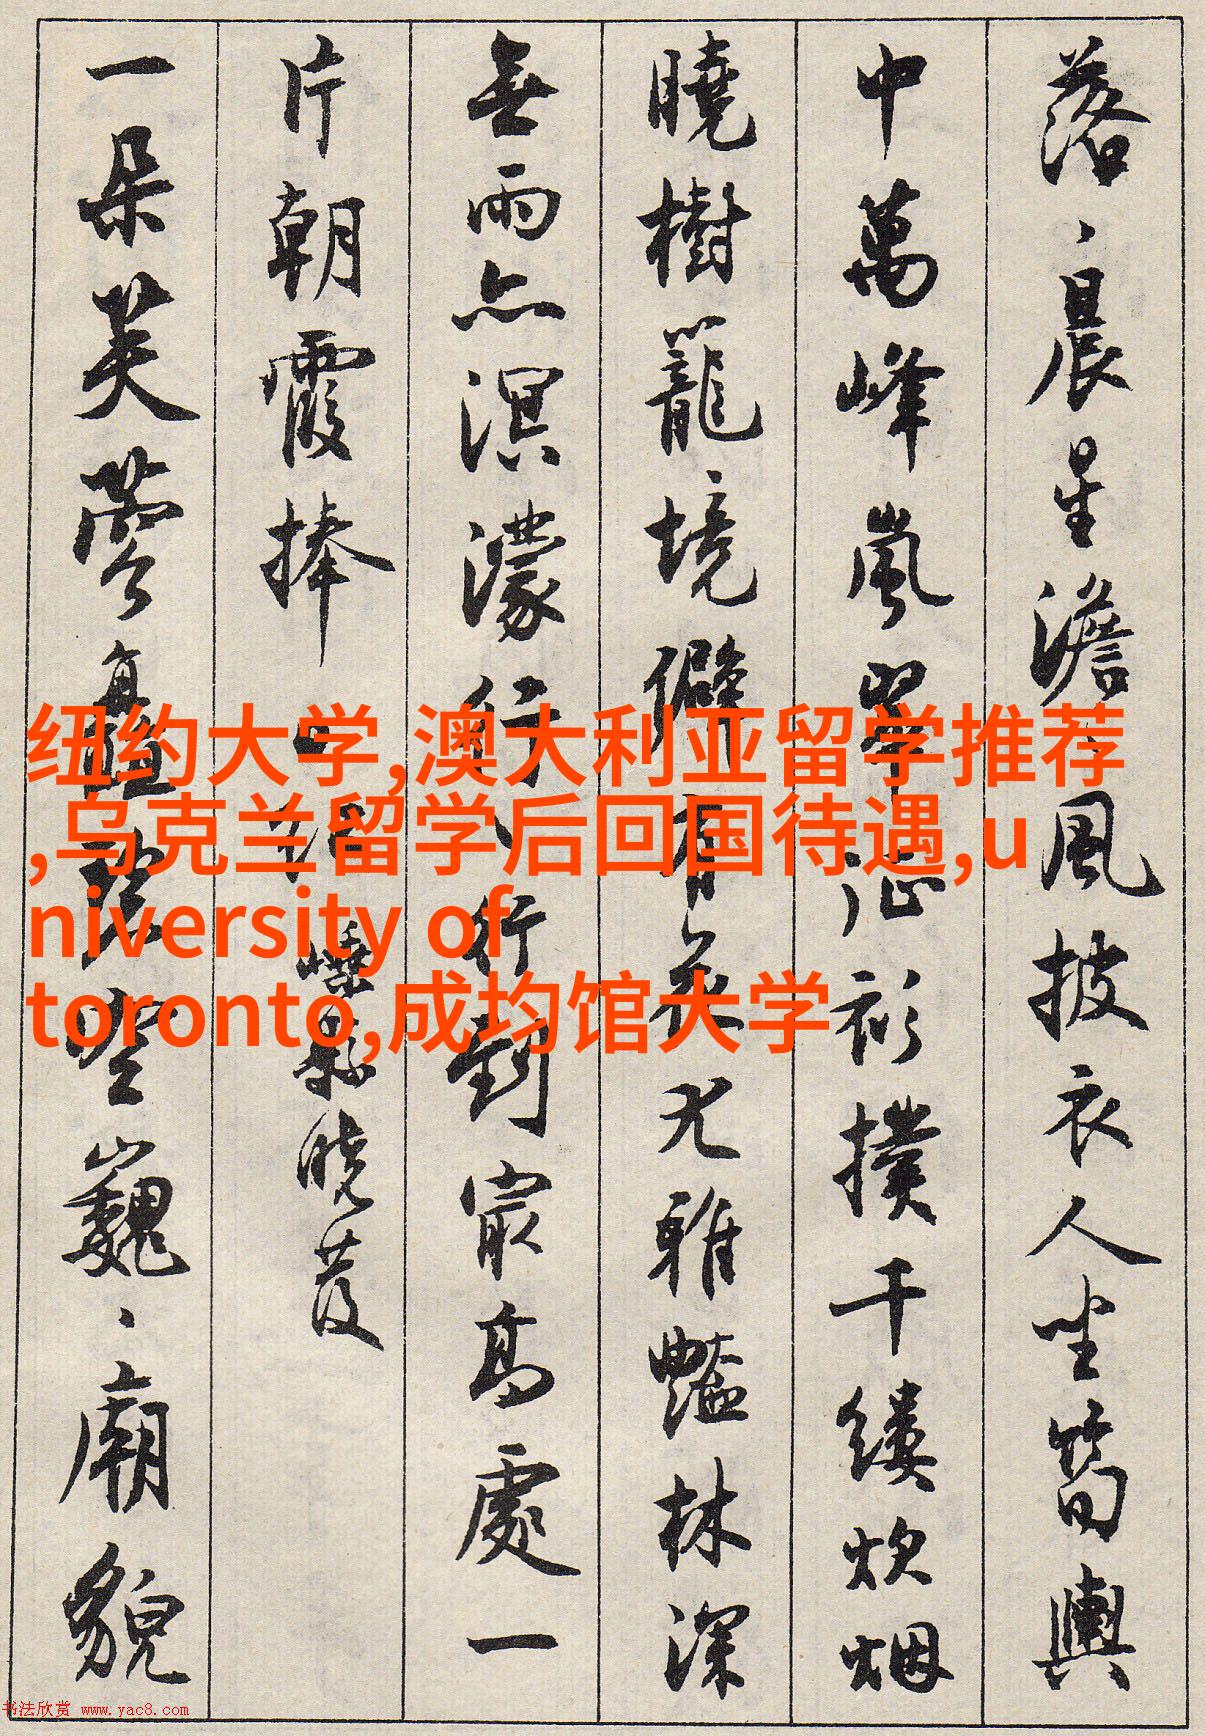 落、晨星澹、風披衣人坐筍輿
中萬峰嵐翠沾衫撲千縷炊烟
曉樹籠境僻有尤雅豔林深
無雨亦溟濛行行到最高處一
片朝霞捧日紅 嶧縣曉發
一朵芙蓉矗碧空巍、廟貌
纽约大学,澳大利亚留学推荐
,乌克兰留学后回国待遇,u
niversity of
toronto,成均馆大学
书法欣赏 www.yac8.com